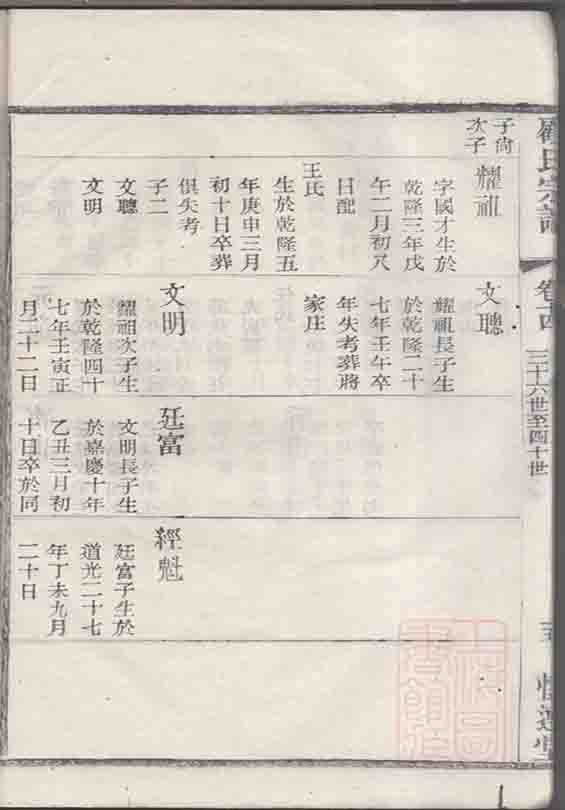 氏宗譜
卷十四
三十六世至四十世
子尚
次子
耀祖
字國才生於
乾隆三年戊
午二月初八
日配
王氏
生於乾隆五
年庚申三月
初十日卒葬
俱失考
子二
文聰
文明
文聰
耀祖長子生
於乾隆二十
七年壬午卒
年失考葬蔣
家庄
文明
耀祖次子生
於乾隆四十
七年壬寅正
月二十二日
廷富
文明長子生
於嘉慶十年
乙丑三月初
十日卒於同
經魁
廷富子生於
道光二十七
年丁未九月
二十日